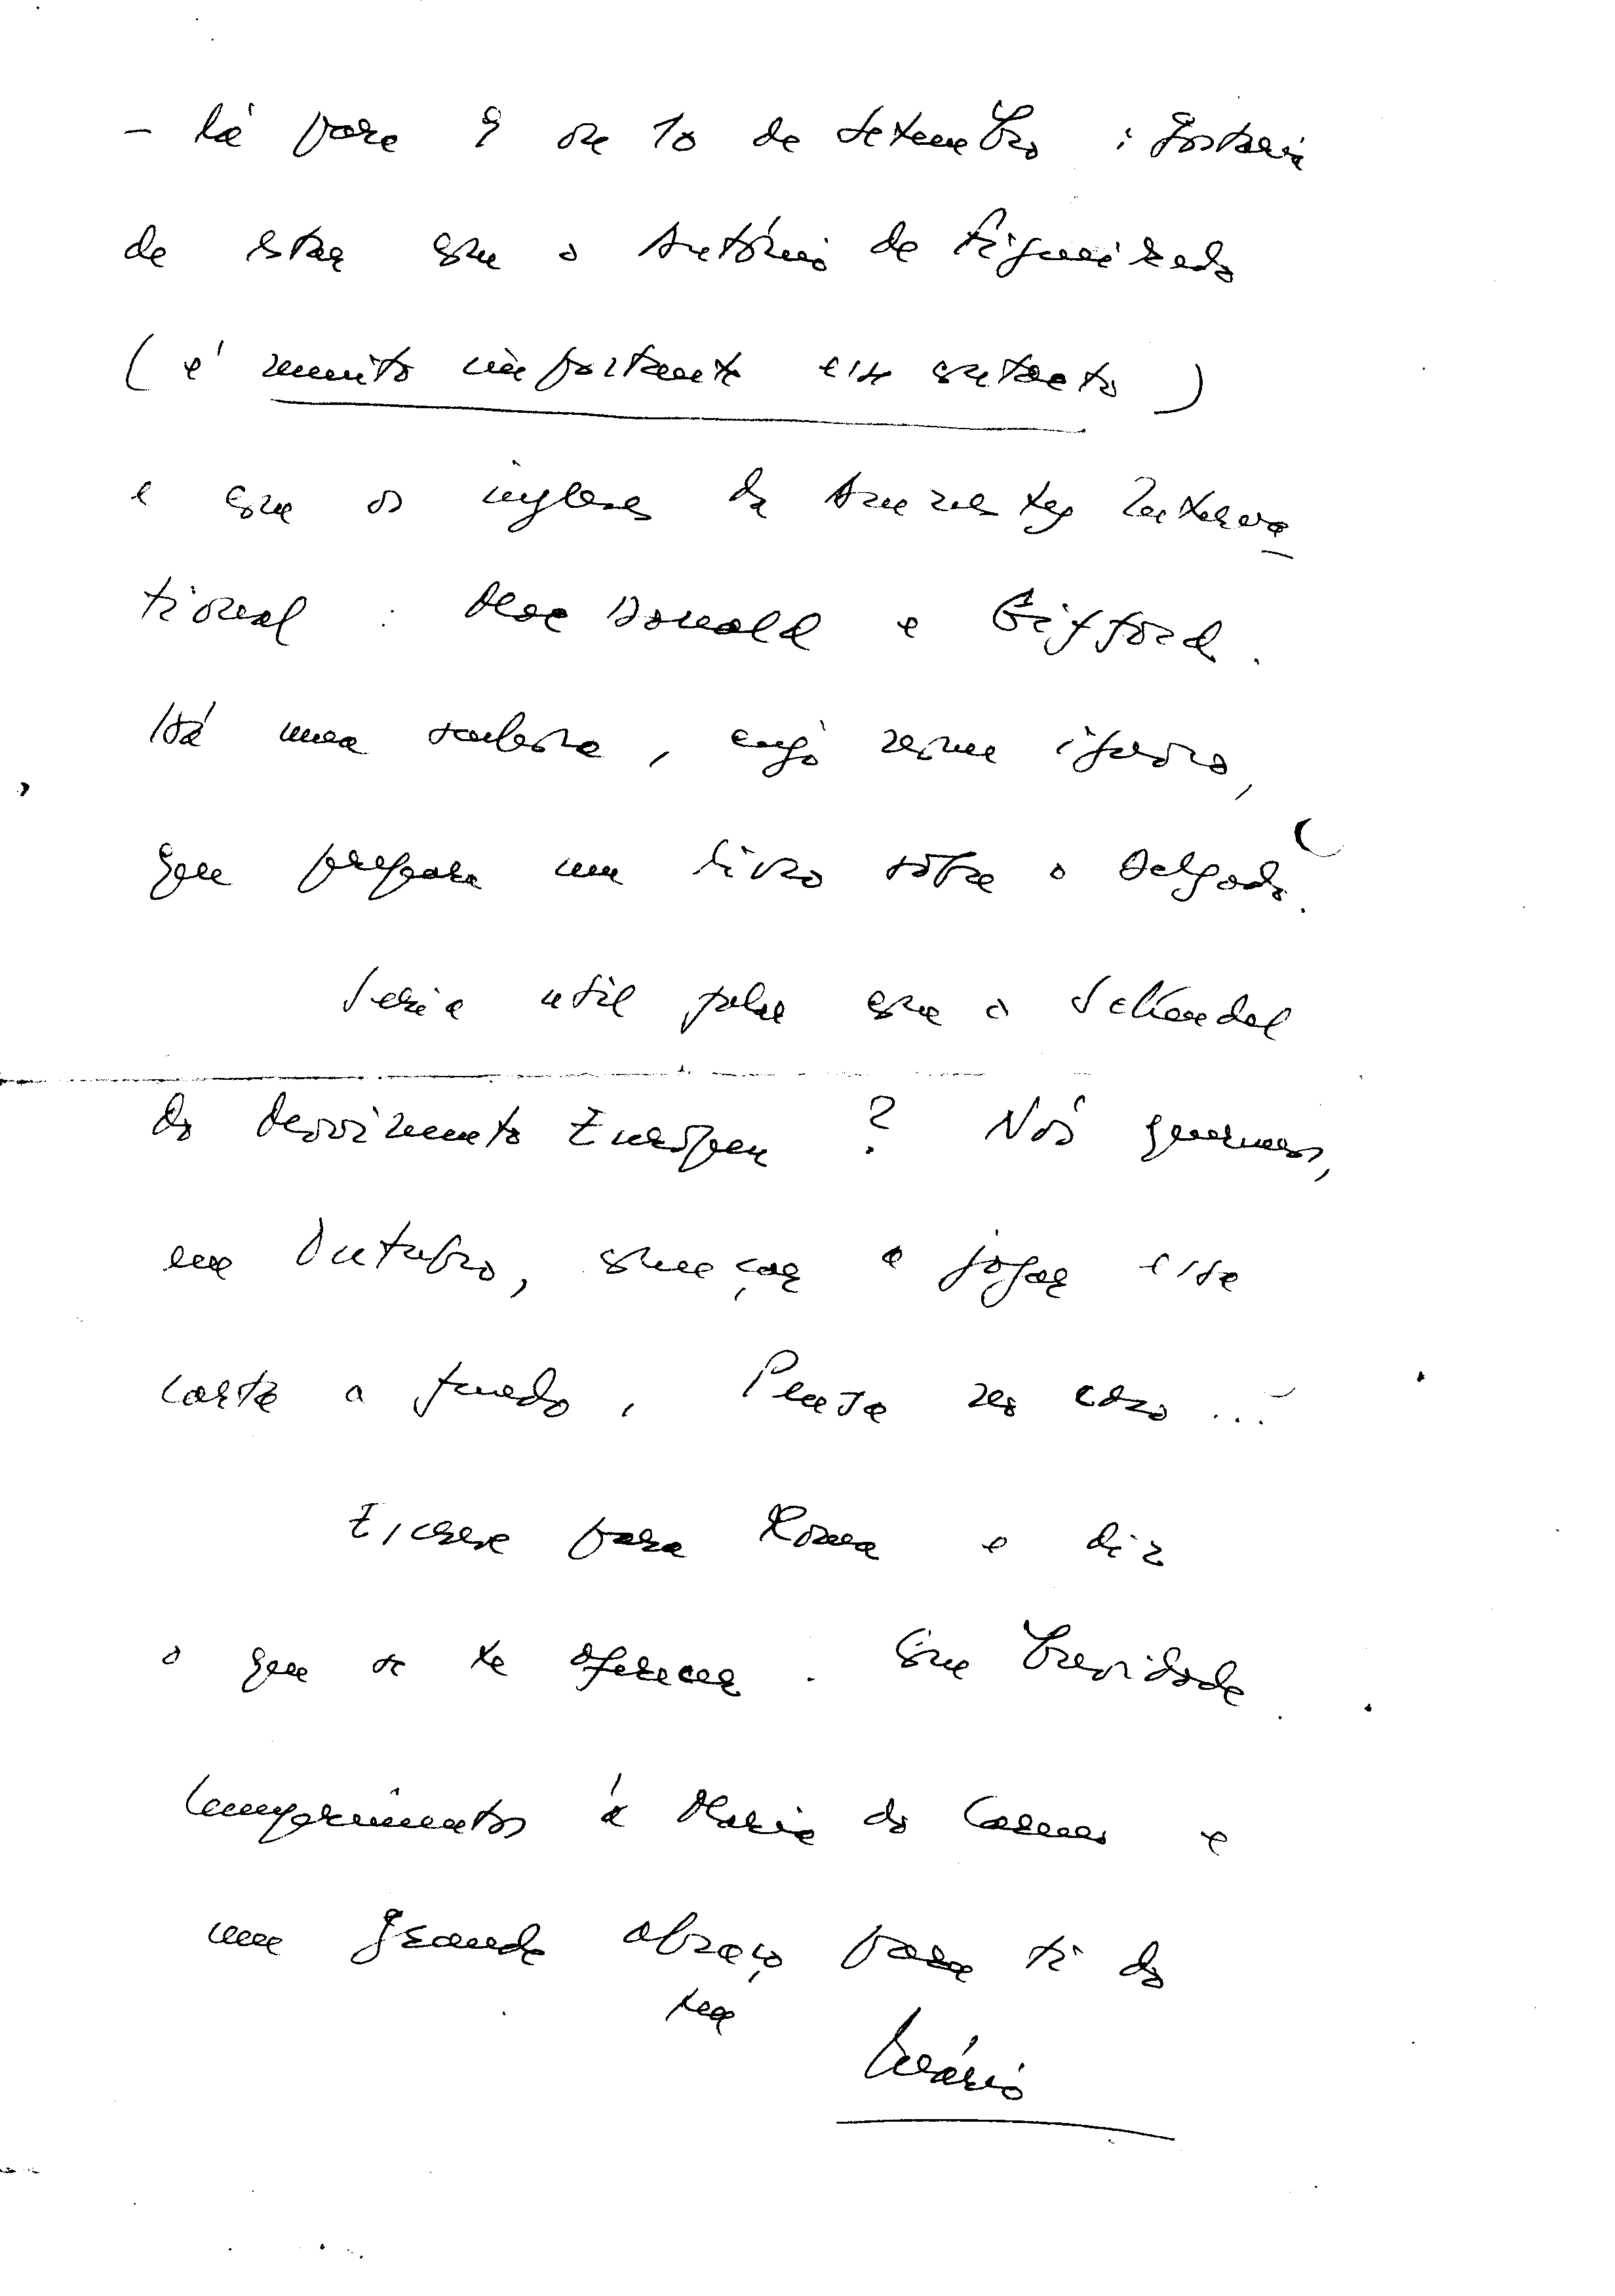 - lá para 9 ou 10 de Setembro : gostaria
de estar com o António de Figueiredo
( é muito importante esse contacto )
e com os ingleses da Amnesty Interna
tional : Mac Donald e Gifford.
Há uma senhora, cujo nome ignoro,
que prepara um livro sôbre o Delgado.
Seria util falar com o
do Movimento Europeu ? Nós queremos,
em Outubro, começar a jogar essa
carta a fundo. Pensa no caso ...
Escreve para Roma e diz
o que se te oferecer. Com brevidade.
Cumprimentos à Maria do Carmo e
um grande abraço para ti do
teu
Mário